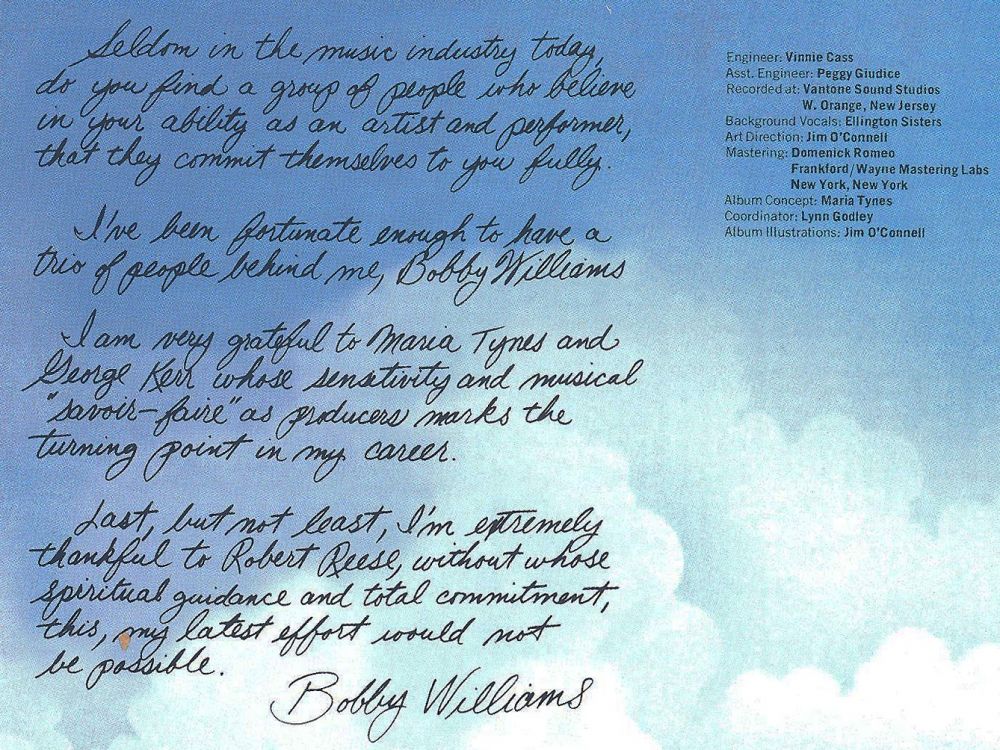 Seldom in the music industry today,
do you find a group of people who believe
in your ability as an artist and performer,
that they commit themselves to you fully.
I've been fortunate enough to have a
trio of people behind me, Bobby Williams
I am very grateful to Maria Tynes and
George Kerr whose sensitivity and musical
"savoir-faire" as producers marks the
turning point in my career.
Last, but not least, I'm extremely
thankful to Robert Reese, without whose
spiritual guidance and total commitment,
this, my latest effort would not
be possible.
Bobby Williams
Engineer: Vinnie Cass
Asst. Engineer: Peggy Giudice
Recorded at: Vantone Sound Studios
W. Orange, New Jersey
Background Vocals: Ellington Sisters
Art Direction: Jim O'Connell
Mastering: Domenick Romeo
Frankford/Wayne Mastering Labs
New York, New York
Album Concept: Maria Tynes
Coordinator: Lynn Godley
Album Illustrations: Jim O'Connell